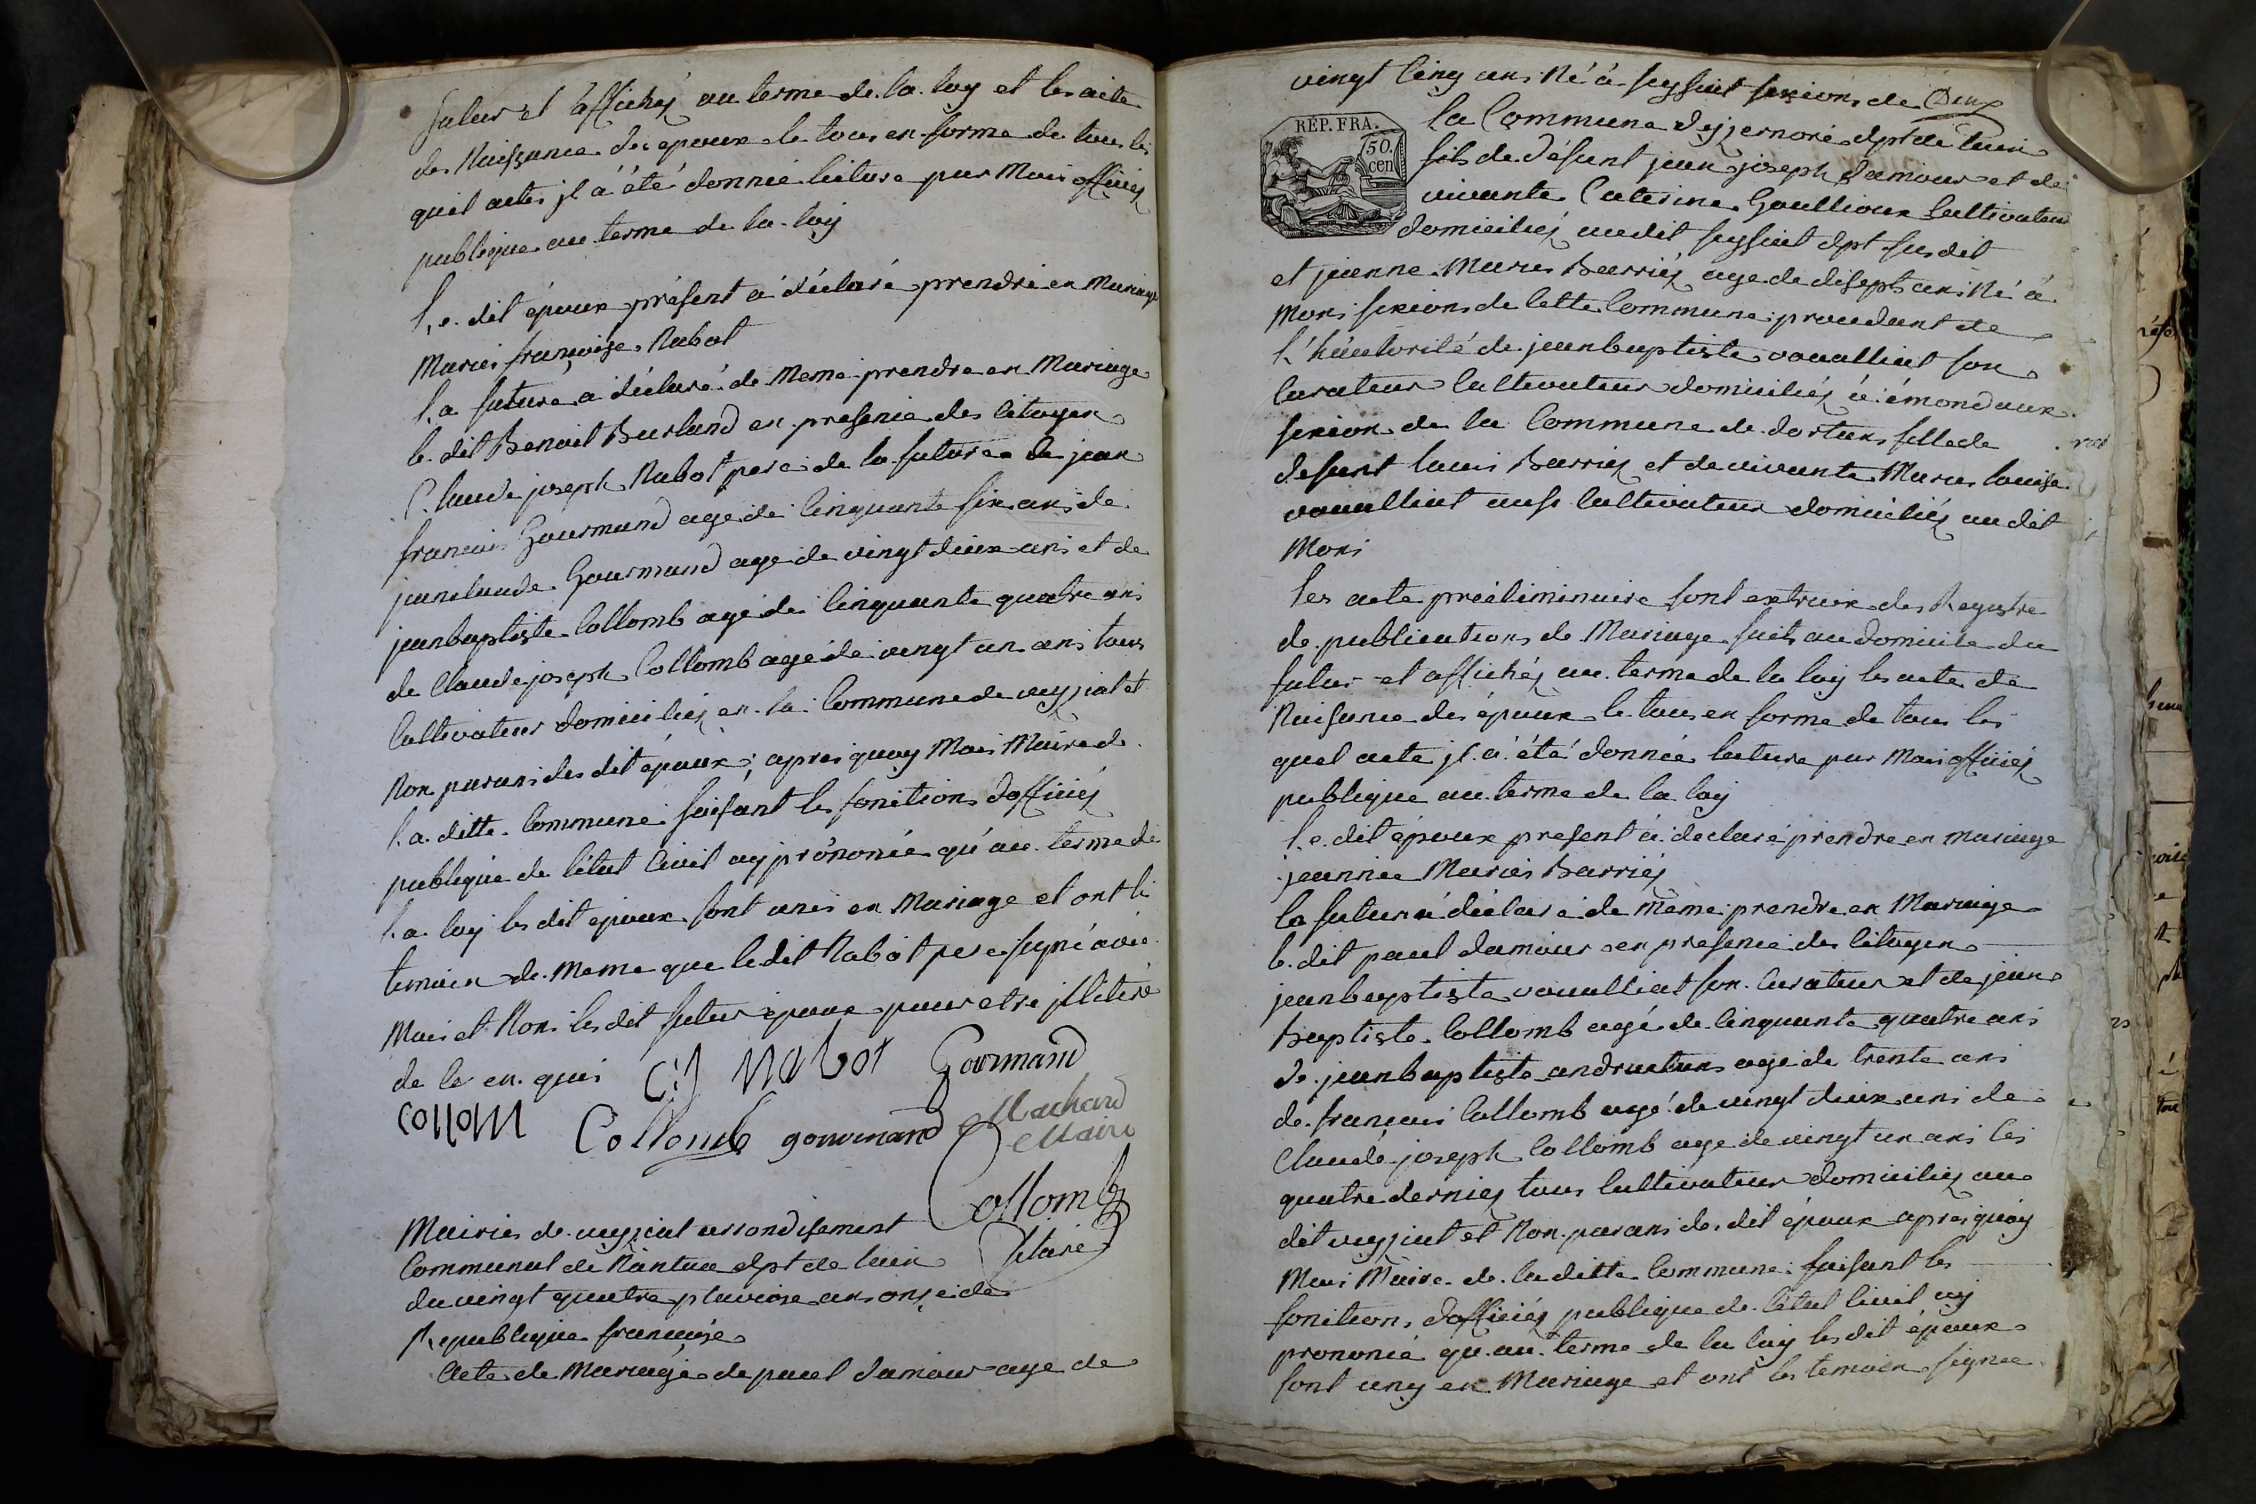 futur et affichéz au terme de la loy et les acte
de Naissance des epoux le tous en forme de tous les
quel actes jl a été donnée lecture par Moi officiéz
publique au terme de la loy
Le dit époux présent a déclaré prendre en Mariage
Marie françoise Nabot
La future a déclaré de meme prendre en Mariage
le dit Benoit Burland en presence des citoyen
Claude joseph Nabot pere de la future de jean
francois Gourmand age de cinquante six ans de
jeanclaude Gourmand age de vingt deux ans et de
jeanbaptiste Collomb agé de cinquante quatre ans
de Claude joseph Collomb agé de vingt un ans tous
Cultivateur domiciliéz en la Commune de veyziat et
Non parans des dit époux, apres quoy Moi Maire de
La ditte Commune faisant les fonctions d'officiéz
publique de l'état Civil ay prononcé qu'au terme de
La loy les dit epoux sont unis en Mariage et ont le
temoin de meme que ledit Nabot pere signé avec
Moi et Non les dit futur époux pour etre jlletére
de ce en quis
C:J Nabot
Gourmand
Collom
Collomb
gourmand
Machard
Maire
Collomb
Mairie de veyziat arrondisement
Communal de Nantua dpt de lain
du vingt quatre pluviose an onze de
Republique francaise
Acte de Mariage de paul damour age de
Deux
vingt cinq ans Né à seyssiat sexions de
RÉP. FRA.
50.
cen
la Commune d'izernore dpt de lain
fils de défunt jean joseph Damour et de
vivante Caterine Goullioux Cultivateur
domiciliéz audit seyssiat dpt susdit
et jeanne Marie Barriéz age de disept ans Né à
Mons sexions de cette Commune procedant de
L'hautorité de jeanbaptiste vouilliat son
Curateur Cultivateur domiciliéz à émondaux
sexion de la Commune de dortans fille de
defunt louis Barriéz et de vivante Marie louise
vouilliat ausi Cultivateur domiciliéz au dit
Mons
Les acte préeliminaire sont extraix des Registre
de publications de Mariage faits au domicile du
futur et affichéz au terme de la loy les acte de
Naisance des époux le tous en forme de tous les
quel acte jl a été donnée lecture par Moi officiéz
publique au terme de la loy
Le dit époux present à declaré prendre en mariage
jeanne Marie Barriéz
la future déclaré de même prendre en Mariage
le dit paul damour en presence des citoyen
jeanbaptiste vouilliat son Curateur et de jean
Baptiste Collomb agé de cinquante quatre ans
de jeanbaptiste age de trente ans
de francois Collomb agé de vingt deux ans de
Claude joseph Collomb age de vingt un ans les
quatre derniéz tous Cultivateur domiciliéz au
dit veyziat et Non parans des dit époux apres quoy
Moi Maire de la ditte Commune faisant les
fonctions d'officiéz publique de l'état Civil ay
prononcé qu'au terme de la loy les dit époux
sont uny en Mariage et ont les temoin signee